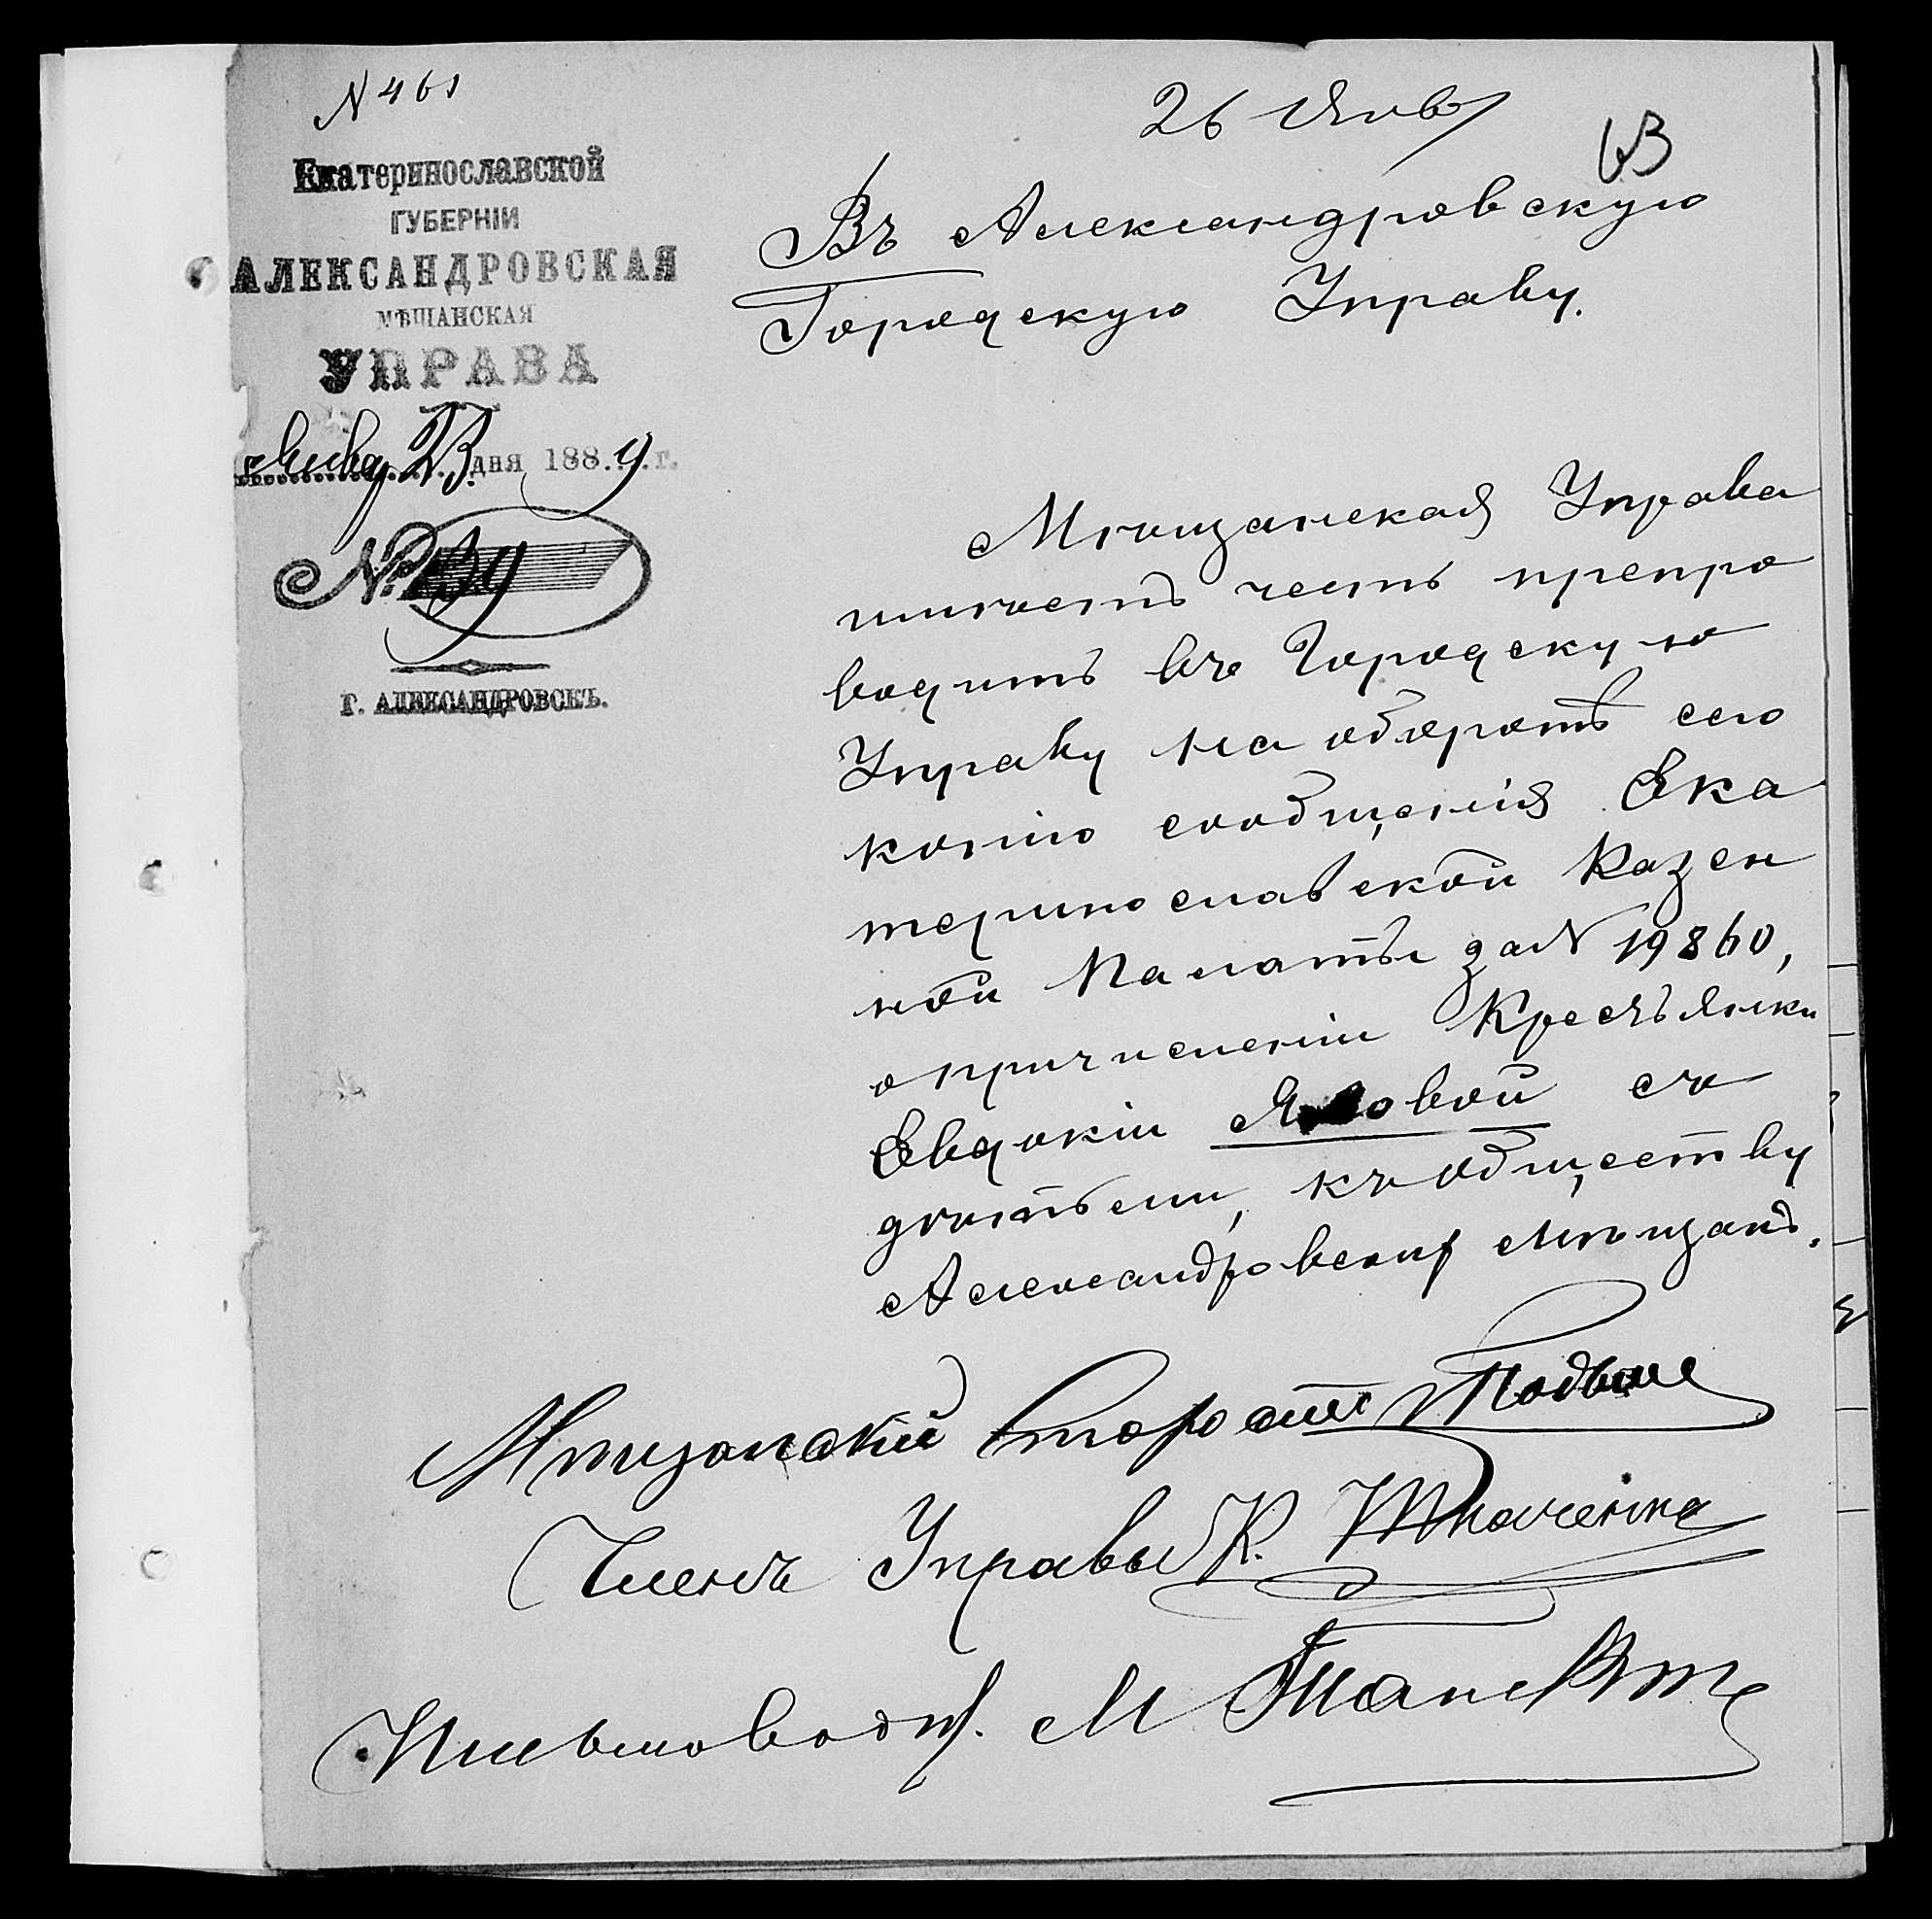 N 461
26 Янв
63
Екатеринославской
ГУБЕРНІИ
АЛЕКСАНДРОВСКАЯ
МѢЩАНСКАЯ
УПРАВА
Январ 23 дня 1889 г.
№ 39
Г. АЛЕКСАНДРОВСКЪ.
Въ Александровскую
Городскую Управу.
Мѣщанская Управа
имѣетъ честь препро
водить въ Городскую
Управу на оборотѣ сего
копію сообщенія Ека
теринославской Казен
ной Палаты за N 19860,
о причисленіи Крестьянки
Евдокіи съ
дѣтьми, къ обществу
Александровских мѣщанъ.
Мѣщанскій Староста
Членъ Управы К. Ткаченко
Письмовод. М